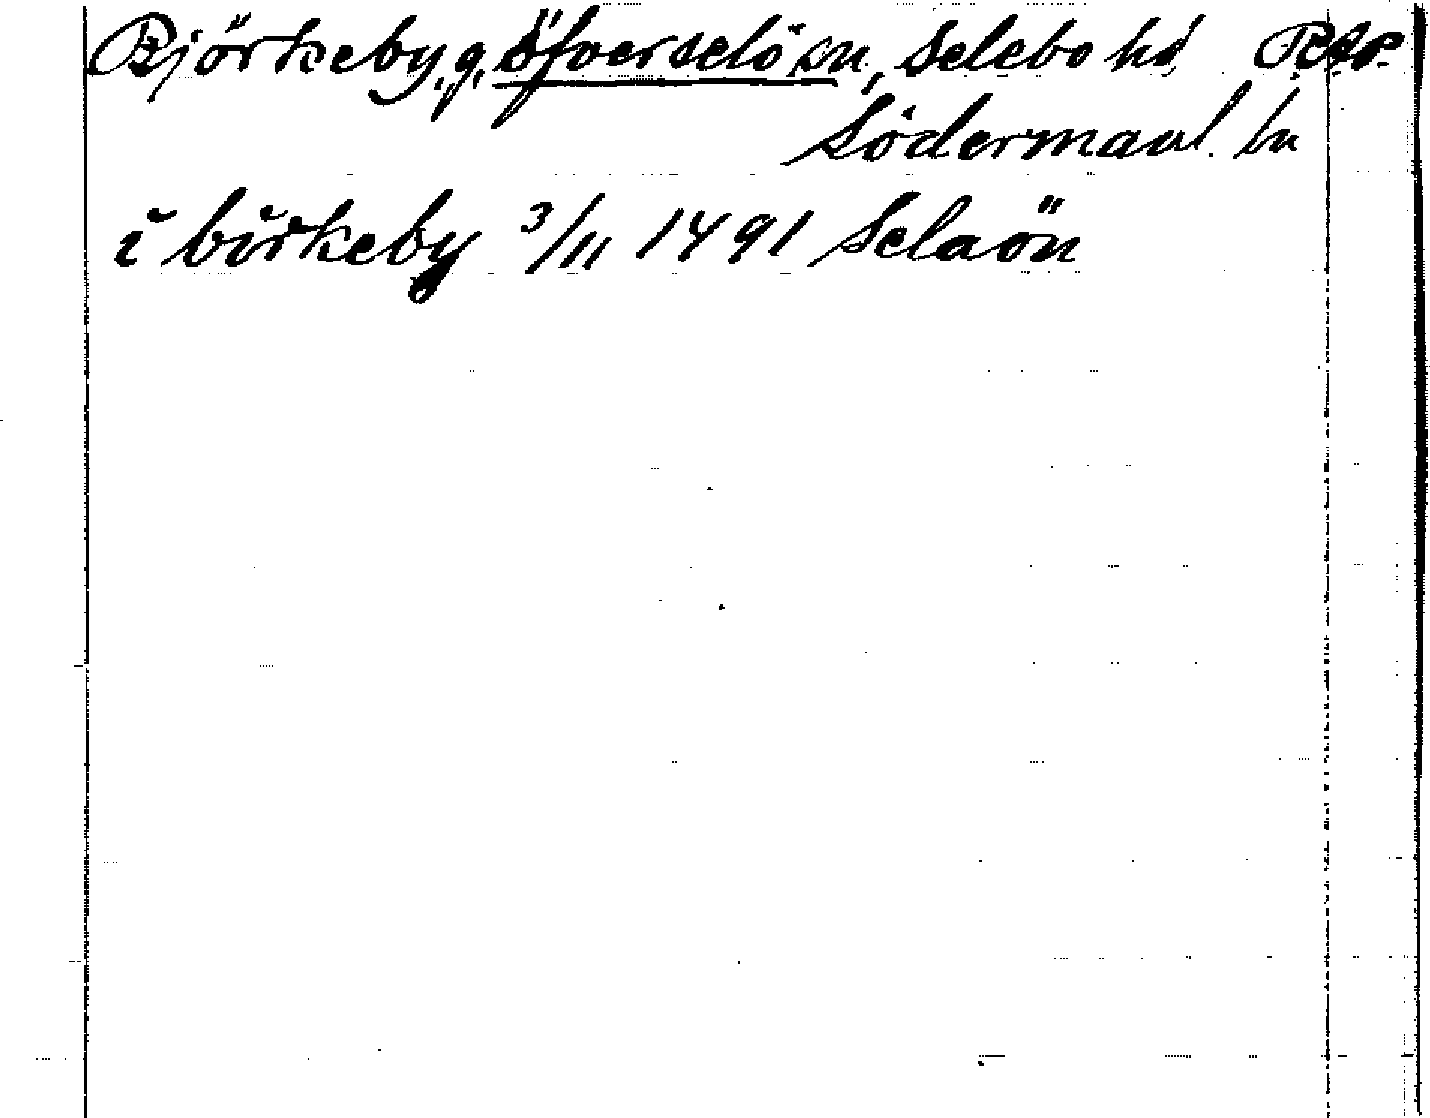 Björkeby, g, Öfverselö sn, Selebo hd RAp.
Södermanl. ln
i birkeby 3/11 1491 Selaön